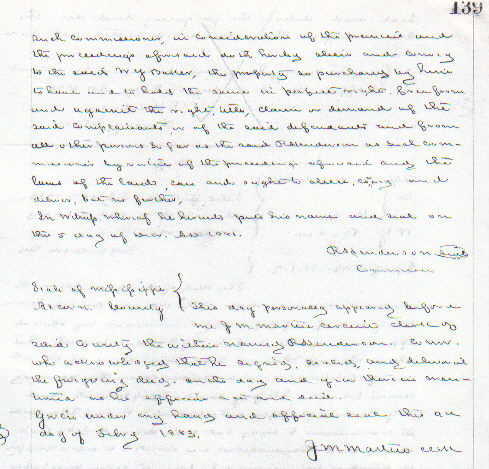 139
such commissioner, in consideration of the premises and
the proceedings aforesaid doth hereby and convey
to the said W Y Baker, the property so purchased by him
to have and to hold the same in perfect right, free from
and against the right, title, claim or demand of the
said complainants or of the said defendants and from
all other persons so far as the said R Henderson as such com-
missioner by virtue of the proceedings aforesaid and the
laws of the land, can and ought to convey and
deliver, but no further,
In witness whereof he hereunto puts his name and seal on
the 5 day of
R Henderson Seal
Commissioner
State of Mississippi
Alcorn County { This day personally appeared before
me J M Martin circuit clerk of
said County the within named R Henderson Comr.
who acknowledged that he signed, sealed, and delivered
the foregoing deed, on the day and year therein men-
tioned as his act and deed
Given under my hand and official seal this
day of Feby 1883.
J M Martin clk